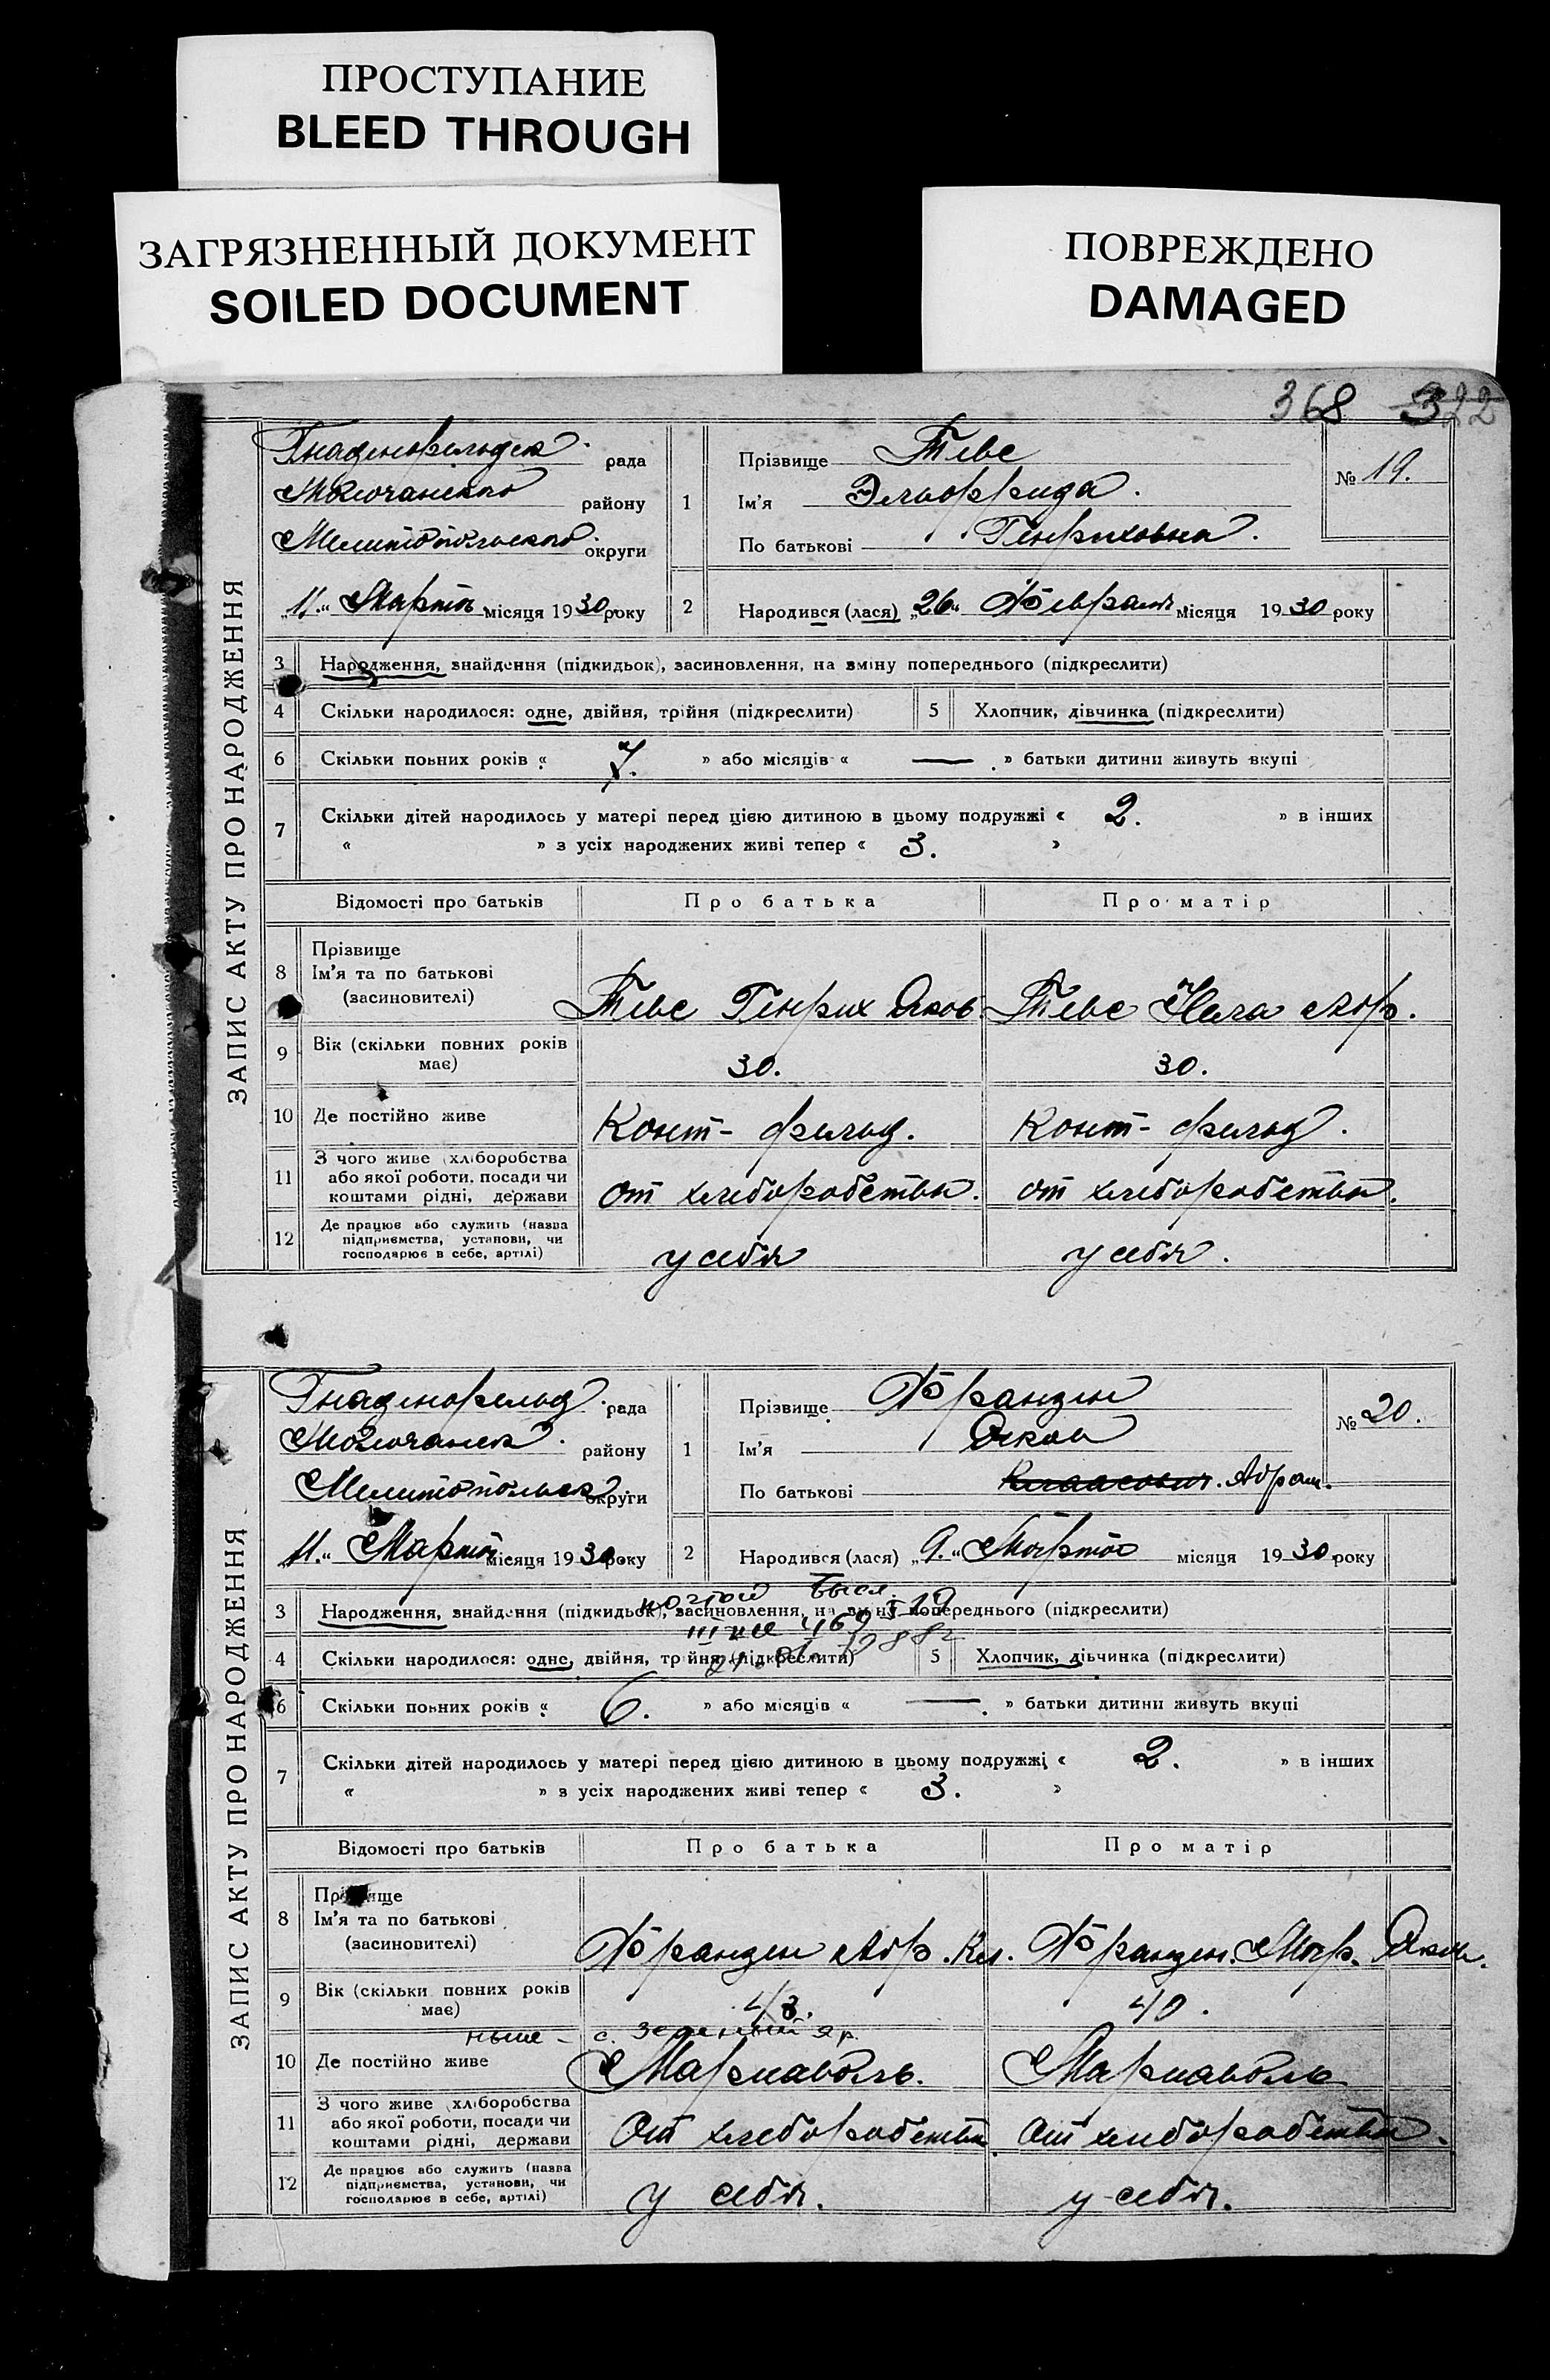 ПРОСТУПАНИЕ
BLEED THROUGH
ЗАГРЯЗНЕННЫЙ ДОКУМЕНТ
SOILED DOCUMENT
ПОВРЕЖДЕНО
DAMAGED
368 322
ЗАПИС АКТУ ПРО НАРОДЖЕННЯ
Гнаденфельдск. рада
Молочанского району
Мелитопольского округи
„11.“ Марта місяця 1930 року
1 Прізвище Тевс
Ім'я Эльфрида.
По батькові Генриховна.
№ 19.
2 Народився (лася) „26“ Февраля місяця 1930 року
3 Народження, знайдення (підкидьок), засиновлення, на зміну попереднього (підкреслити)
4 Скільки народилося: одне, двійня, трійня (підкреслити) 5 Хлопчик, дівчинка (підкреслити)
6 Скільки повних років « 7. » або місяців « — » батьки дитини живуть вкупі
7 Скільки дітей народилось у матері перед цією дитиною в цьому подружжі « 2. » в інших
« » з усіх народжених живі тепер « 3. »
Відомості про батьків Про батька Про матір
8 Прізвище
Ім'я та по батькові
(засиновителі)
Тевс Генрих Яков. Тевс Неля Абр.
9 Вік (скільки повних років
має) 30. 30.
10 Де постійно живе Конт-фельд. Конт-фельд.
11 З чого живе (хліборобства
або якої роботи, посади чи
коштами рідні, держави
от хлеборобства. от хлеборобства.
12 Де працює або служить (назва
підприємства, установи, чи
господарює в себе, артілі)
у себя у себя.
ЗАПИС АКТУ ПРО НАРОДЖЕННЯ
Гнаденфельд. рада
Молочанск. району
Мелитопольск. округи
„11.“ Марта місяця 1930 року
1 Прізвище Францен
Ім'я Яков
По батькові Клаасович. Абрам.
№ 20.
2 Народився (лася) „9.“ Марта місяця 1930 року
3 Народження, знайдення (підкидьок), засиновлення, на зміну попереднього (підкреслити)
4 Скільки народилося: одне, двійня, трійня (підкреслити) 5 Хлопчик, дівчинка (підкреслити)
6 Скільки повних років « 6. » або місяців « — » батьки дитини живуть вкупі
7 Скільки дітей народилось у матері перед цією дитиною в цьому подружжі « 2. » в інших
« » з усіх народжених живі тепер « 3. »
Відомості про батьків Про батька Про матір
8 Прізвище
Ім'я та по батькові
(засиновителі)
Францен Абр. Кл. Францен. Мар. Яков.
9 Вік (скільки повних років
має) 43. 40.
ныне - с. Зеленый яр.
10 Де постійно живе Мариаволь. Мариаволь
11 З чого живе (хліборобства
або якої роботи, посади чи
коштами рідні, держави
От хлеборобства От хлеборобства.
12 Де працює або служить (назва
підприємства, установи, чи
господарює в себе, артілі)
у себя. у себя.